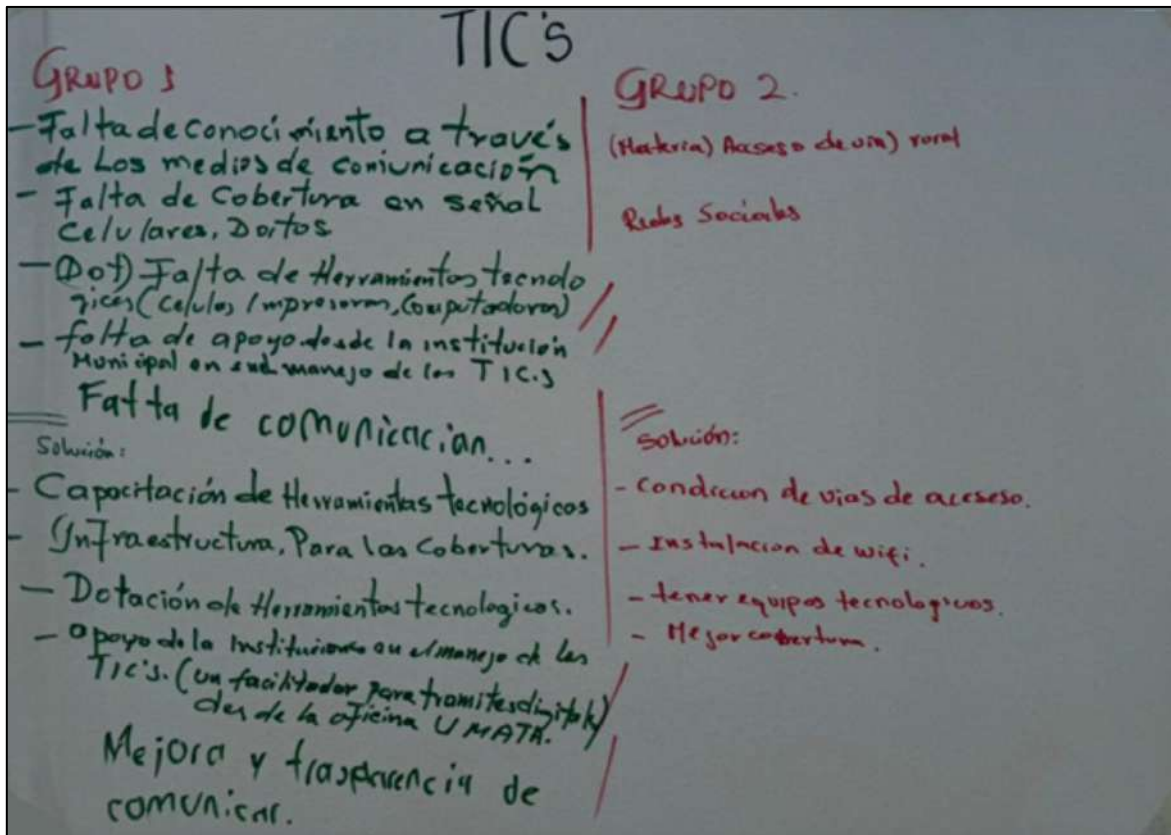 TIC'S
GRUPO 1
- Falta de conocimiento a través
de Los medios de comunicación
- Falta de Cobertura en señal
Celulares, Datos
- (Dot) Falta de Herramientas tecnolo
gicas (Celulas Impresoras, Computadoras)
- falta de apoyo desde la institución
Municipal en el manejo de las TIC.s
Fatta de comunicacian...
Solución:
- Capacitación de Herramientas tecnológicos
- Infraestructura, Para las Coberturas.
- Dotación de Herramientas tecnologicos.
- apoyo de la Instituciones en el manejo de las
TIC'S. (un facilitador para tramites digitales)
desde la oficina UMATA.
Mejora y trasparencia de
comunicar.
GRUPO 2.
(Materia) Acseso de via) rural
Redes Sociales
Solución:
- Condicion de vias de acceseso.
- Instalacion de wifi.
- tener equipos tecnologicos.
- Mejor cobertura.